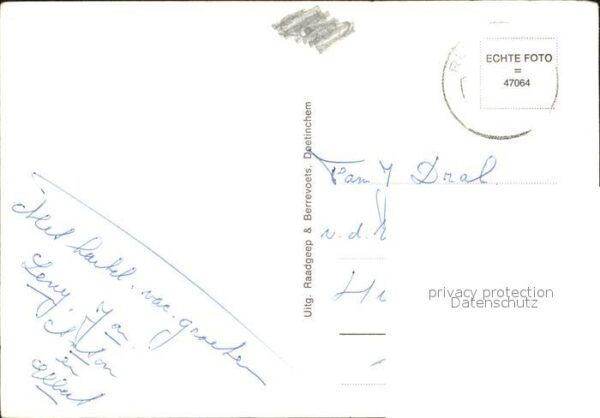 ECHTE FOTO
=
47064
Uitg. Raadgeep & Berrevoets, Doetinchem
Fam Dral
v. d.
H
Met hartel. vac. groeten
Leny, Jan
Anton
en
privacy protection
Datenschutz